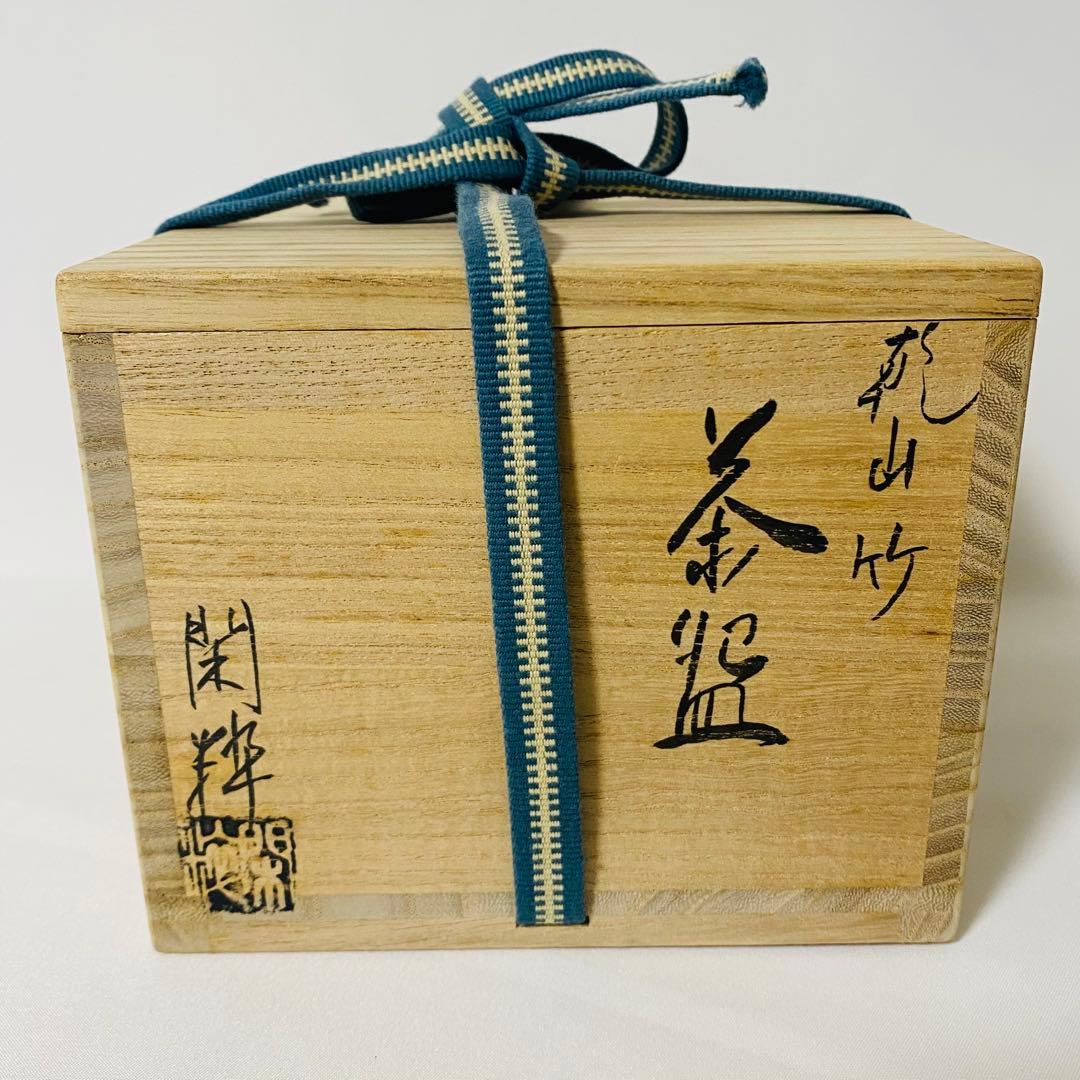 乾山竹
茶盌
閑粋